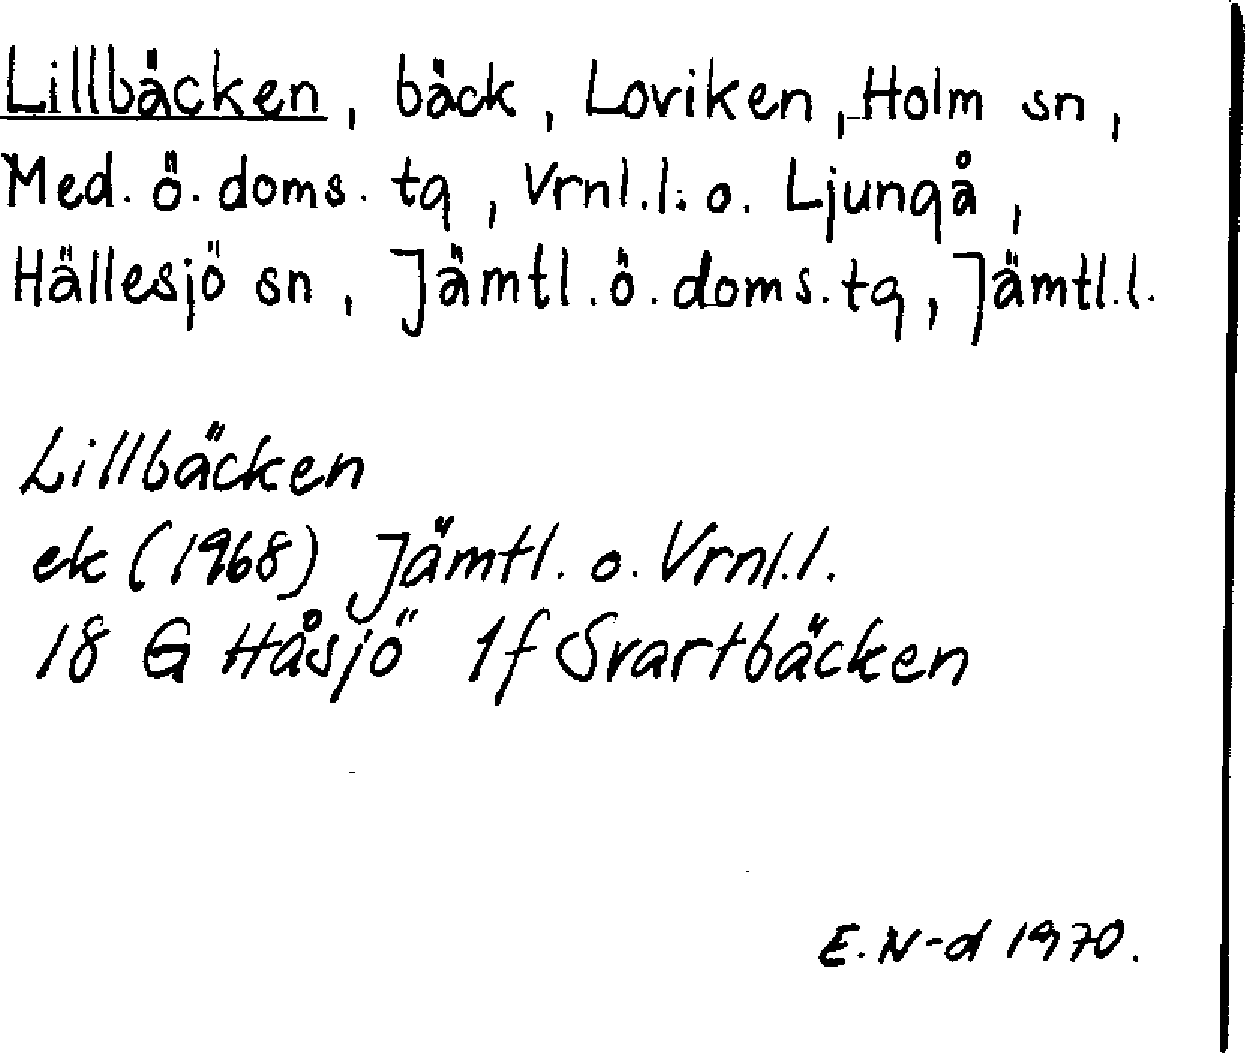 Lillbäcken, bäck, Loviken, Holm sn,
Med. ö. doms. tg, Vrnl.l. o. Ljungå,
Hällesjö sn, Jämtl. ö. doms. tg, Jämtl.l.
Lillbäcken
ek (1968) Jämtl. o. Vrnl.l.
18 G Håsjö 1f Svartbäcken
E. N-d 1970.